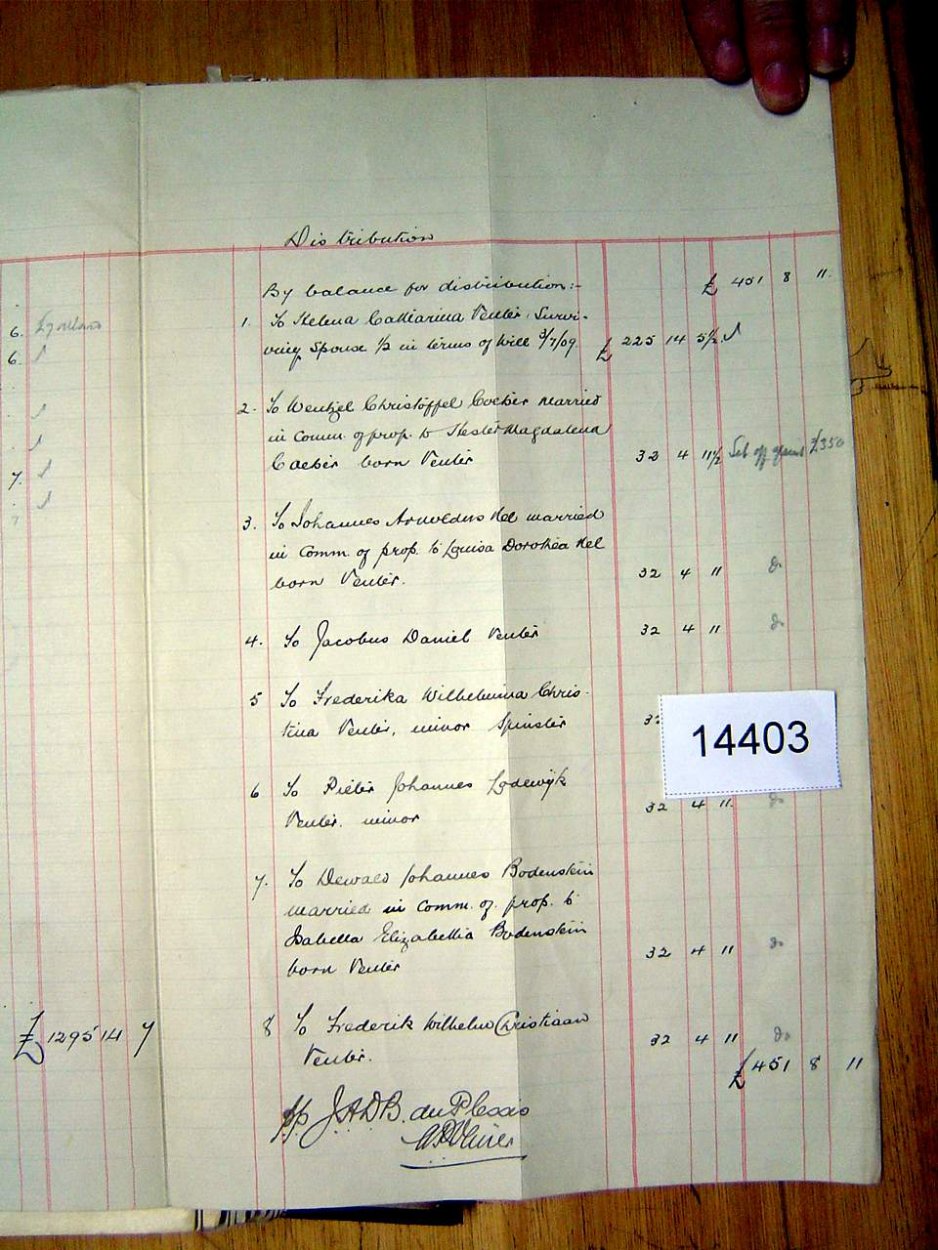 Distribution
By balance for distribution:- £ 451 8 11.
1. To Helena Catharina Venter, Survi-
ving Spouse 1/2 in terms of Will 3/7/09. £ 225 14 5 1/2
2. To Wentzel Christoffel Coetzer married
in Comm. of prop. to Hester Magdalena
Coetzer born Venter 32 4 11 1/2 Set off £350
3. To Johannes Arnoldus Nel married
in Comm. of prop. to Louisa Dorothea Nel
born Venter. 32 4 11 do
4. To Jacobus Daniel Venter 32 4 11 do
5 To Frederika Wilhelmina Chris-
tina Venter, minor Spinster 32
14403
6 To Pieter Johannes Lodewyk
Venter. minor 32 4 11. do
7. To Dewald Johannes Bodenstein
married in Comm. of. prop. to
Isabella Elizabetha Bodenstein
born Venter 32 4 11 do
8 To Frederik Wilhelm Christiaan
Venter. 32 4 11 do
£ 451 8 11
pp. J.A.D.B. du Plessis
6.
6.
7.
7
£ 1295 14 7